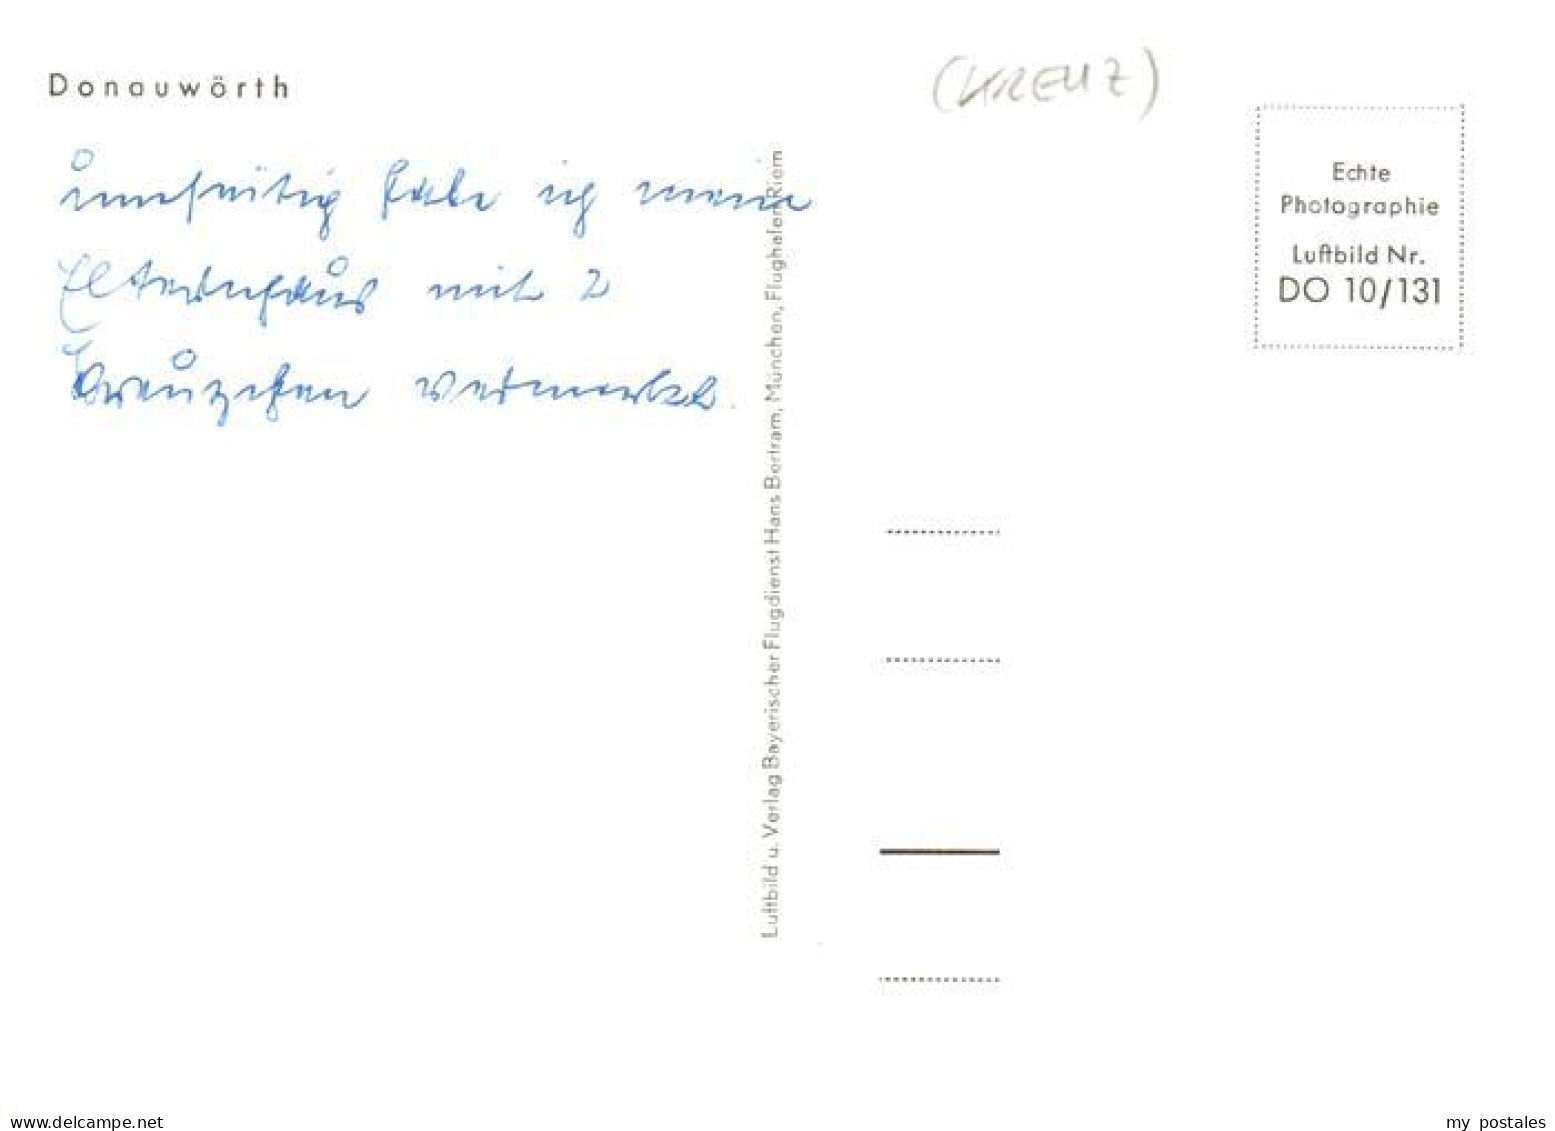 Donauwörth
(KREUZ)
umseitig habe ich mein
Elternhaus mit 2
Kreuzchen vermerkt.
Echte
Photographie
Luftbild Nr.
DO 10/131
Luftbild u. Verlag Bayerischer Flugdienst Hans Bertram, München, Flughafen Riem
www.delcampe.net
my postales